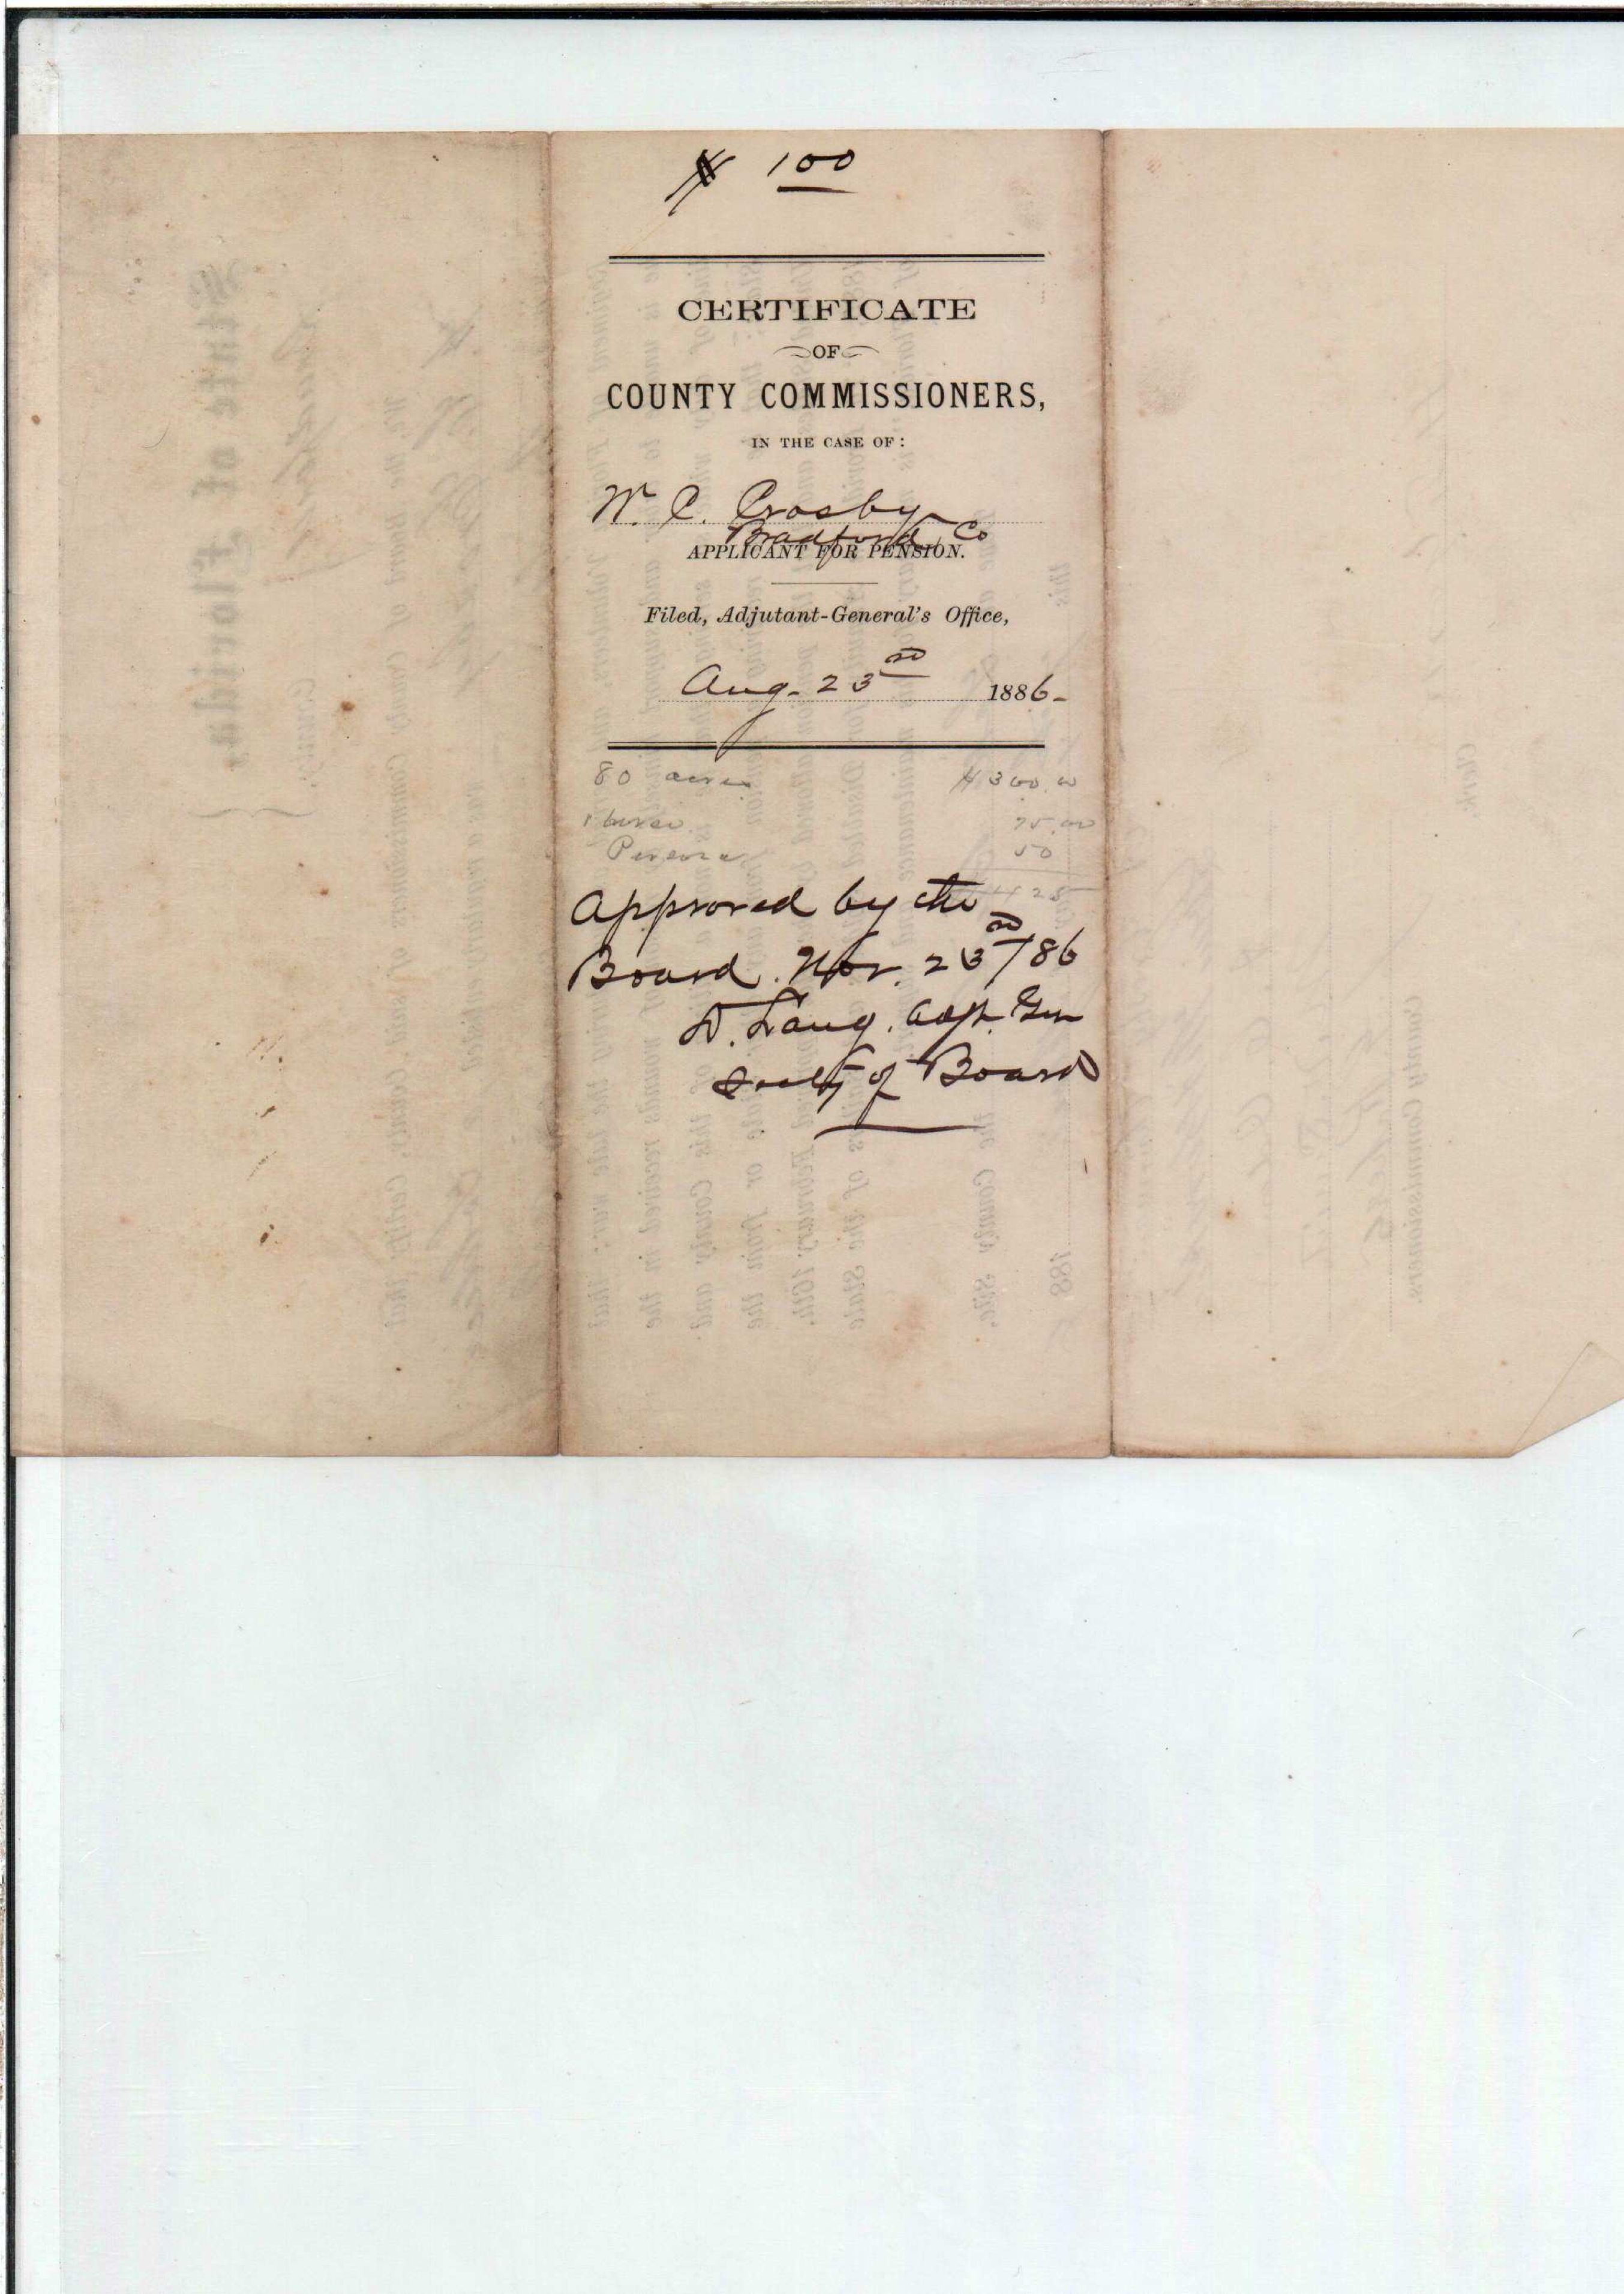 $ 100
CERTIFICATE
OF
COUNTY COMMISSIONERS,
IN THE CASE OF:
W. C. Crosby
Bradford Co
APPLICANT FOR PENSION.
Filed, Adjutant-General's Office,
Aug. 23rd 1886
80 acres $300.00
1 horse 75.00
50
425
Approved by the
Board. Nov. 23rd/86
D. Lang. Adjt. Gen
Secty of Board